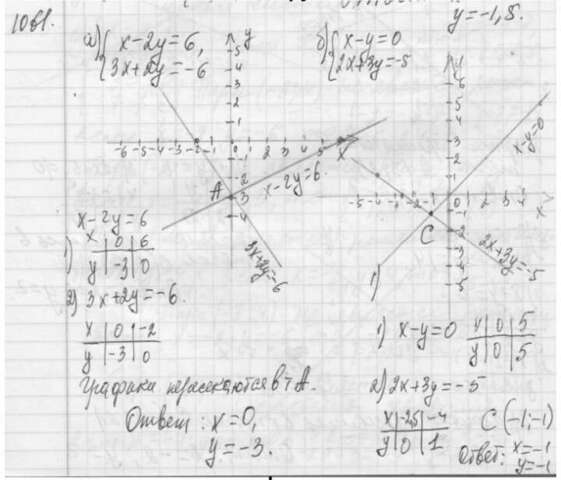 1061.
y=-1,5.
а) { x-2y=6,
3x+2y=-6
б) { x-y=0
2x+3y=-5
y
5
4
3
2
1
-6 -5 -4 -3 -2 -1 0 1 2 3 4 5 x
-2
-3
-4
A
x-2y=6
3x+2y=-6
y
6
5
4
3
2
1
-5 -4 -3 -2 -1 0 1 2 3 4 x
-1
-2
-3
-4
-5
C
x-y=0
2x+3y=-5
1)
x-2y=6
1) x | 0 | 6
y | -3 | 0
2) 3x+2y=-6.
x | 0 | -2
y | -3 | 0
Графики пересекаются в т А.
Ответ: x=0,
y=-3.
1) x-y=0
x | 0 | 5
y | 0 | 5
2) 2x+3y=-5
x | -2,5 | -4
y | 0 | 1
C (-1;-1)
Ответ: x=-1
y=-1